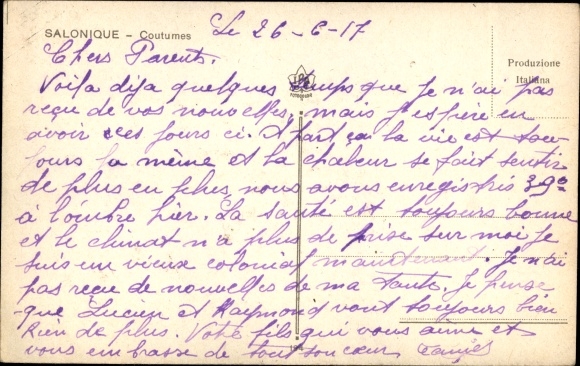 SALONIQUE – Coutumes
Le 26-6-17
Produzione
Italiana
Chers Parents.
Voila dija quelques temps que je n'ai pas
reçu de vos nouvelles, mais j'espère en
avoir ces jours ci. A part ça la vie est tou-
jours la même et la chaleur se fait sentir
de plus en plus, nous avons enregistris 39°
à l'ombre hier. La santé est toujours bonne
et le climat n'a plus de prise sur moi je
suis un vieux colonial maintenant. Je n'ai
pas reçu de nouvelles de ma tante. Je pense
que Lucien et Raymond vont toujours bien
Rien de plus. Votre fils qui vous aime et
vous embrasse de tout son cœur